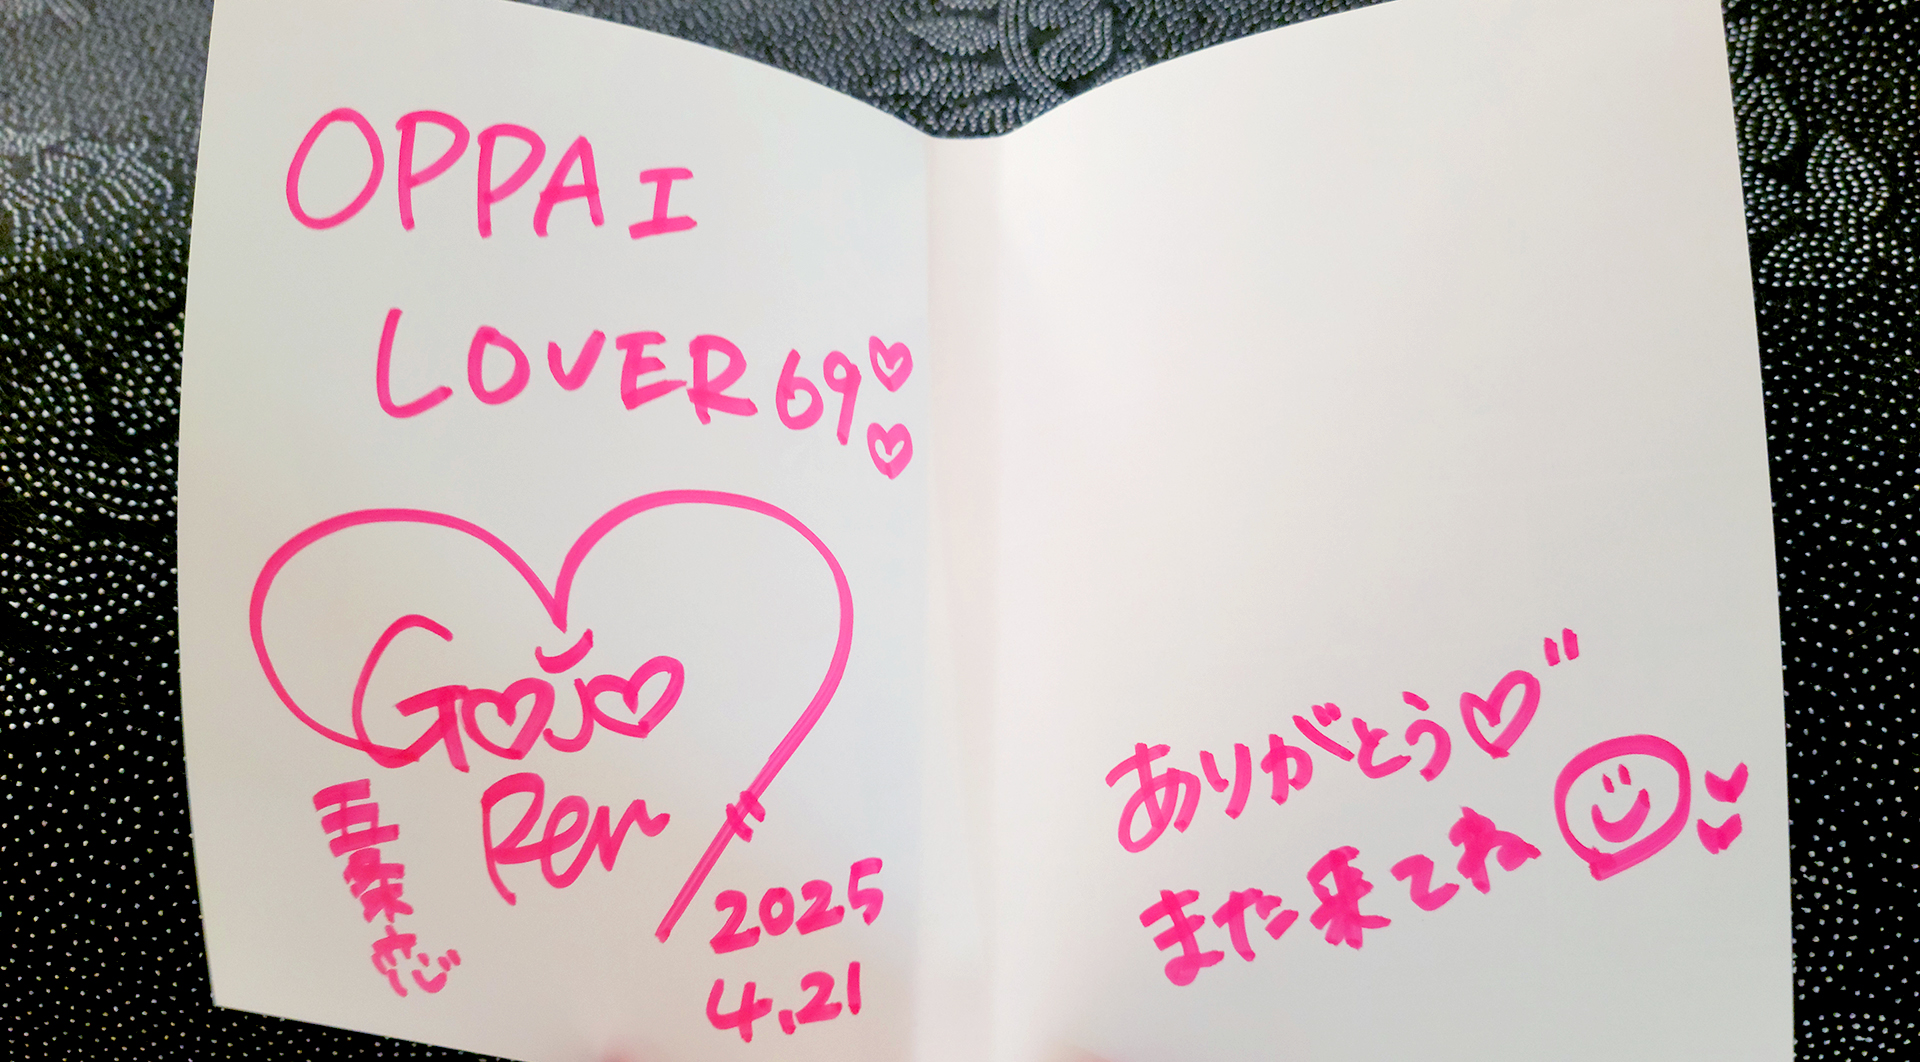 OPPAI
LOVER69
Gojo
Ren
五条恋
2025
4.21
ありがとう
また来てね